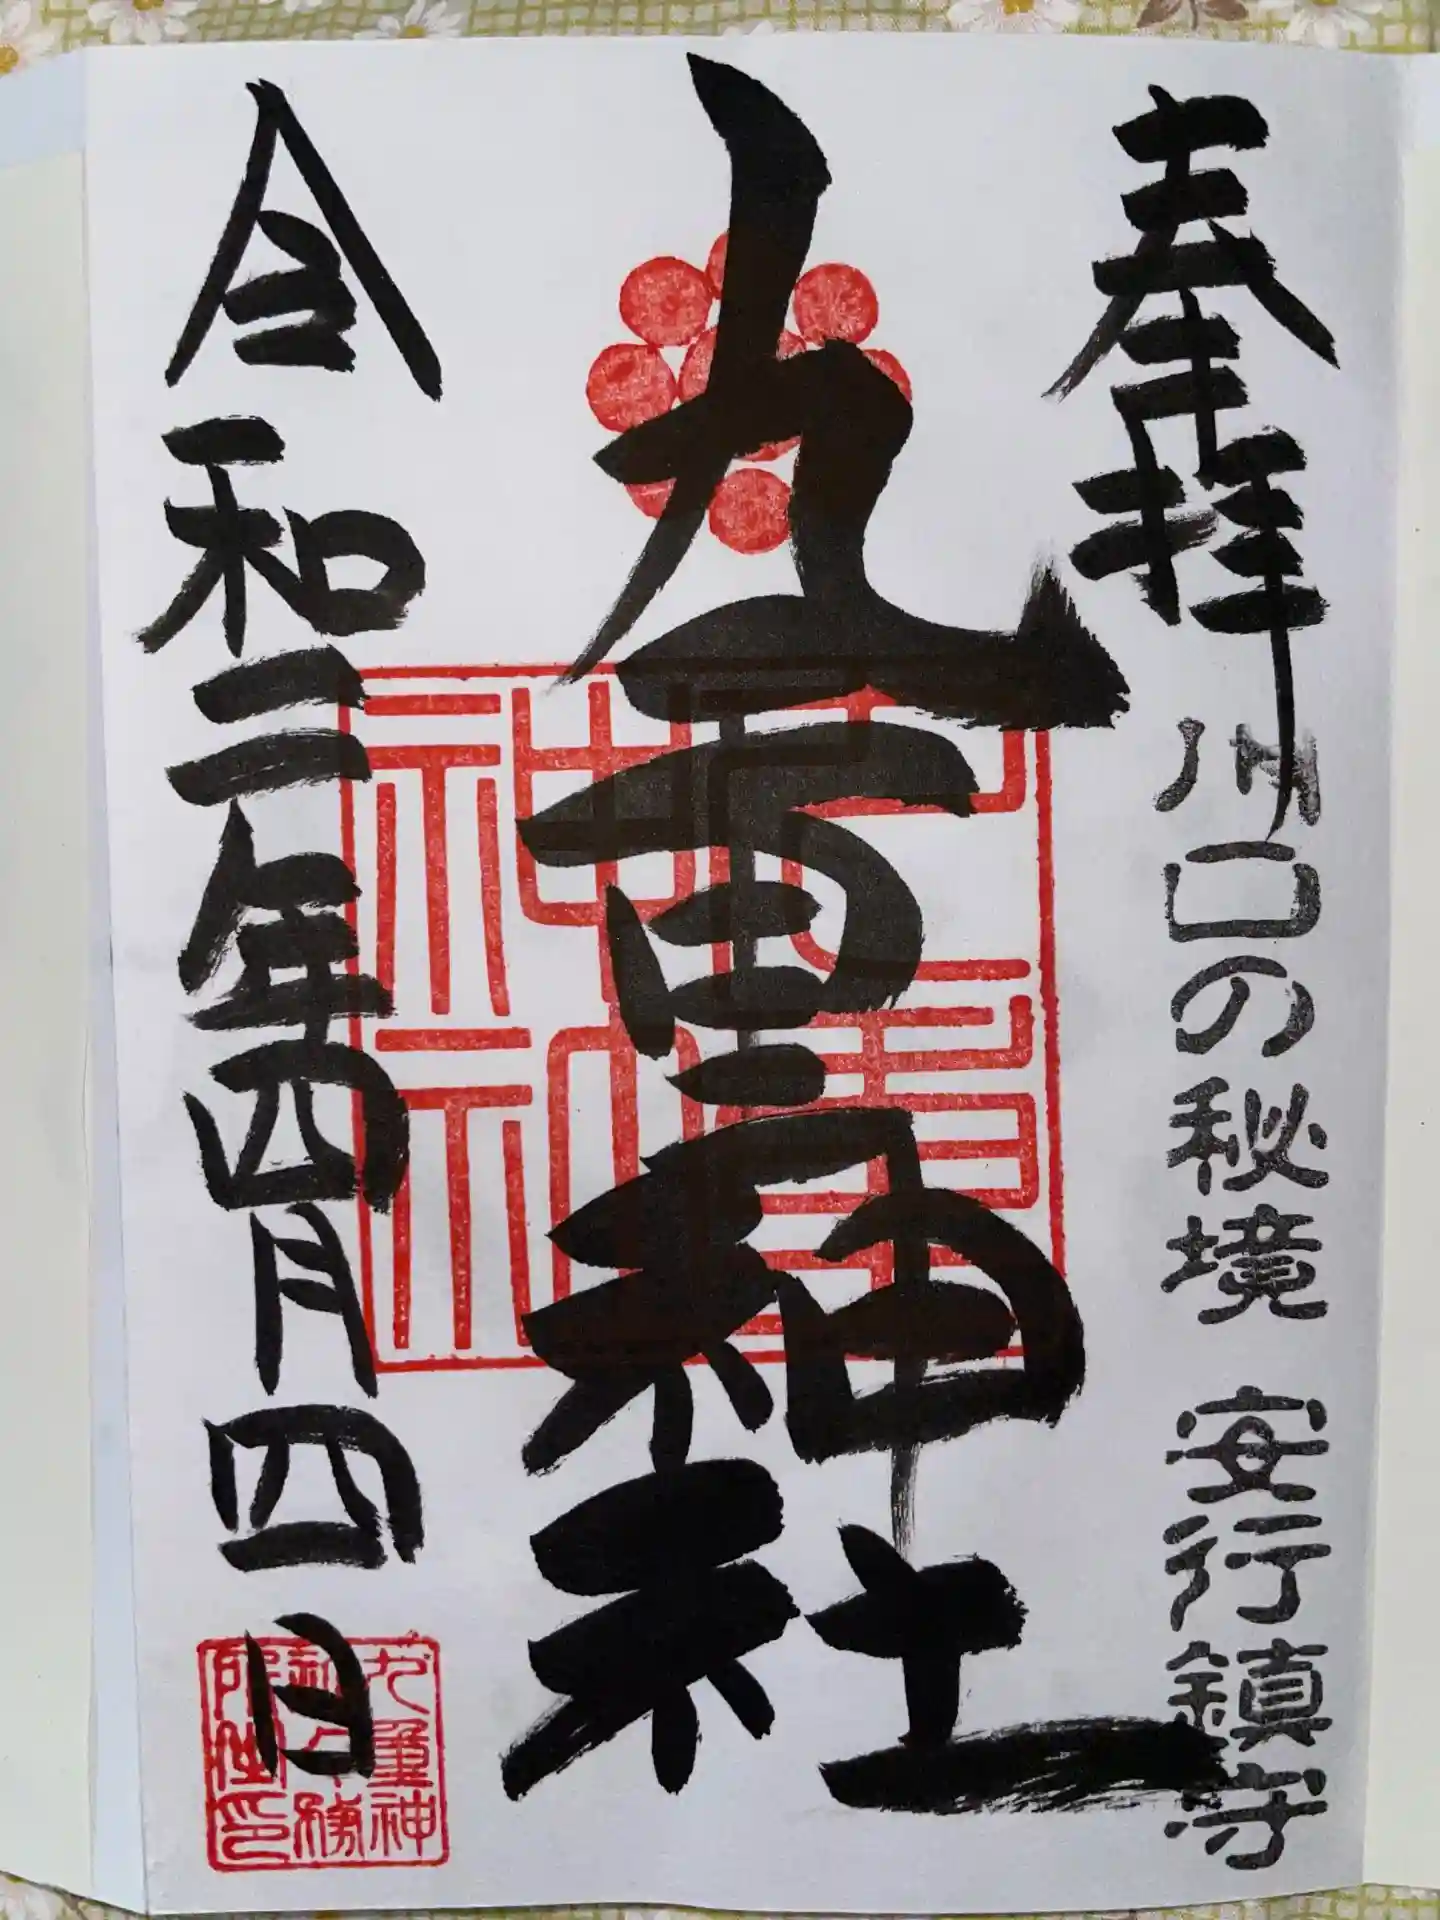 奉拝
川口の秘境 安行鎮守
九重神社
九重神社
令和二年四月四日
九重神
社務
所之印